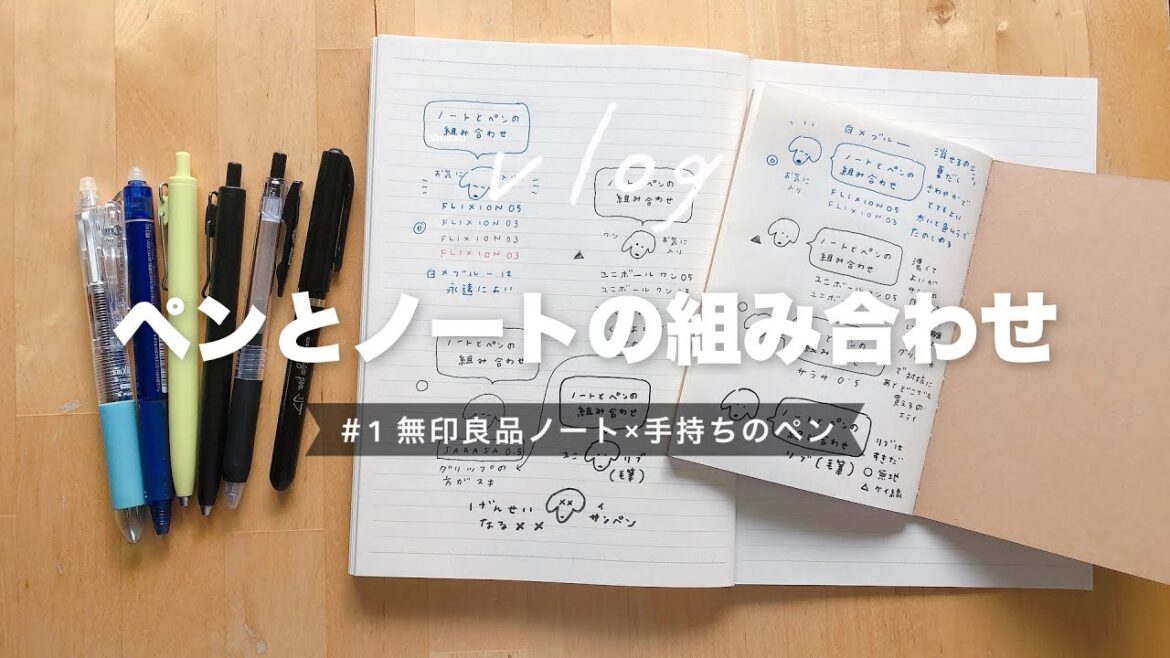 vlog
ペンとノートの組み合わせ
#1 無印良品ノート×手持ちのペン
ノートとペンの
組み合わせ
お気に
FLIXION 05
FLIXION 03
FLIXION 03
FLIXION 03
白×ブルーは
永遠によい
ノートとペンの
組み合わせ
ワン
お気に
入り
ユニボールワン 05
ユニボールワン
SARASA 0.5
グリップの
方がスキ
ノートとペンの
組み合わせ
ユニ
リブ
(毛筆)
げんせい
なる××
サンペン
白×ブルー
ノートとペンの
組み合わせ
お気に
入り
FLIXION 05
FLIXION 03
消せるの
夏だし
さわやかで
とてもよい
たのしめる
ノートとペンの
組み合わせ
ユニボールワン 05
ユニボ
濃くて
よいが
サラサ 0.5
で対抗に
あとどこでも
買えるの
エライ
ノートとペンの
組み合わせ
リブ(毛筆)
リブは
すきだ
○無地
△ケイ線